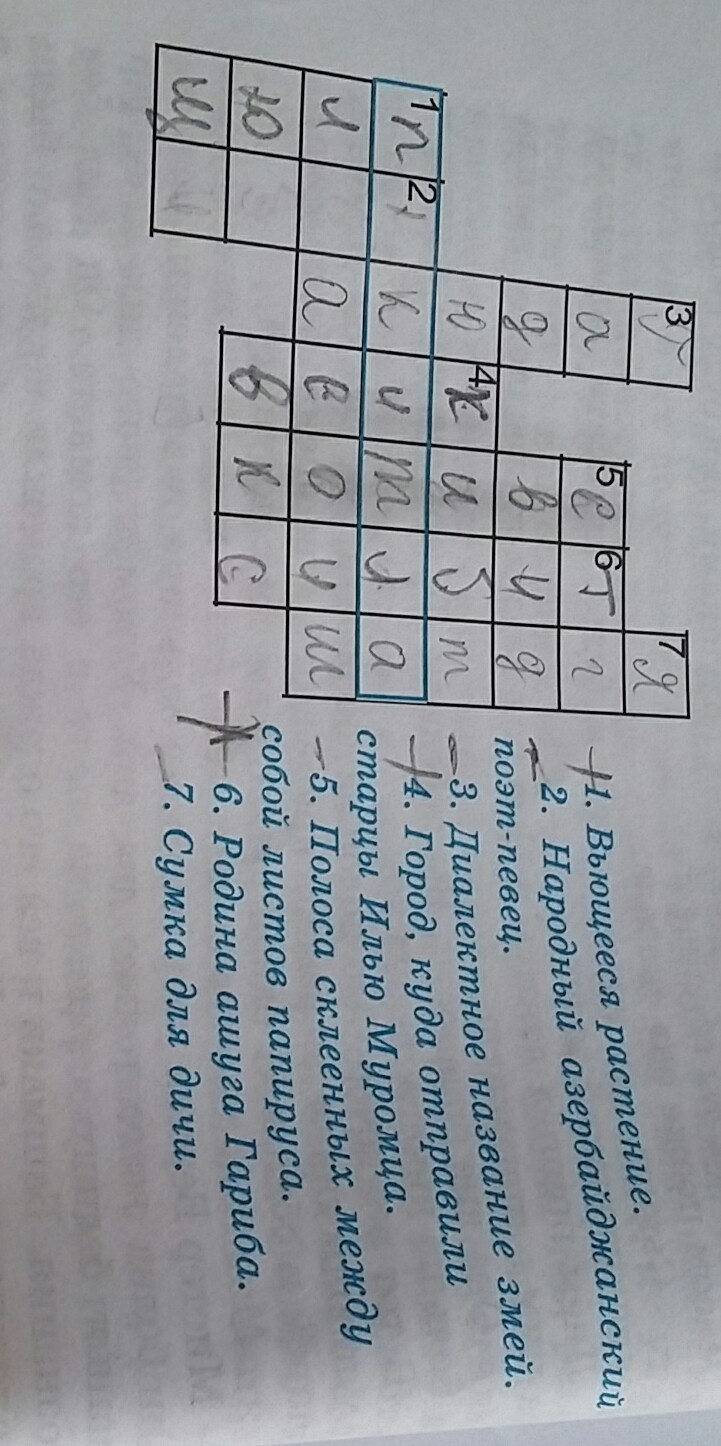 3Г 7Я
а 5С 6Т г
д в и д
ю 4К и б т
1П 2 к и т л а
л а е о и ш
ю в к с
щ
1. Вьющееся растение.
2. Народный азербайджанский
поэт-певец.
3. Диалектное название змей.
4. Город, куда отправили
старцы Илью Муромца.
5. Полоса склеенных между
собой листов папируса.
6. Родина ашуга Гариба.
7. Сумка для дичи.